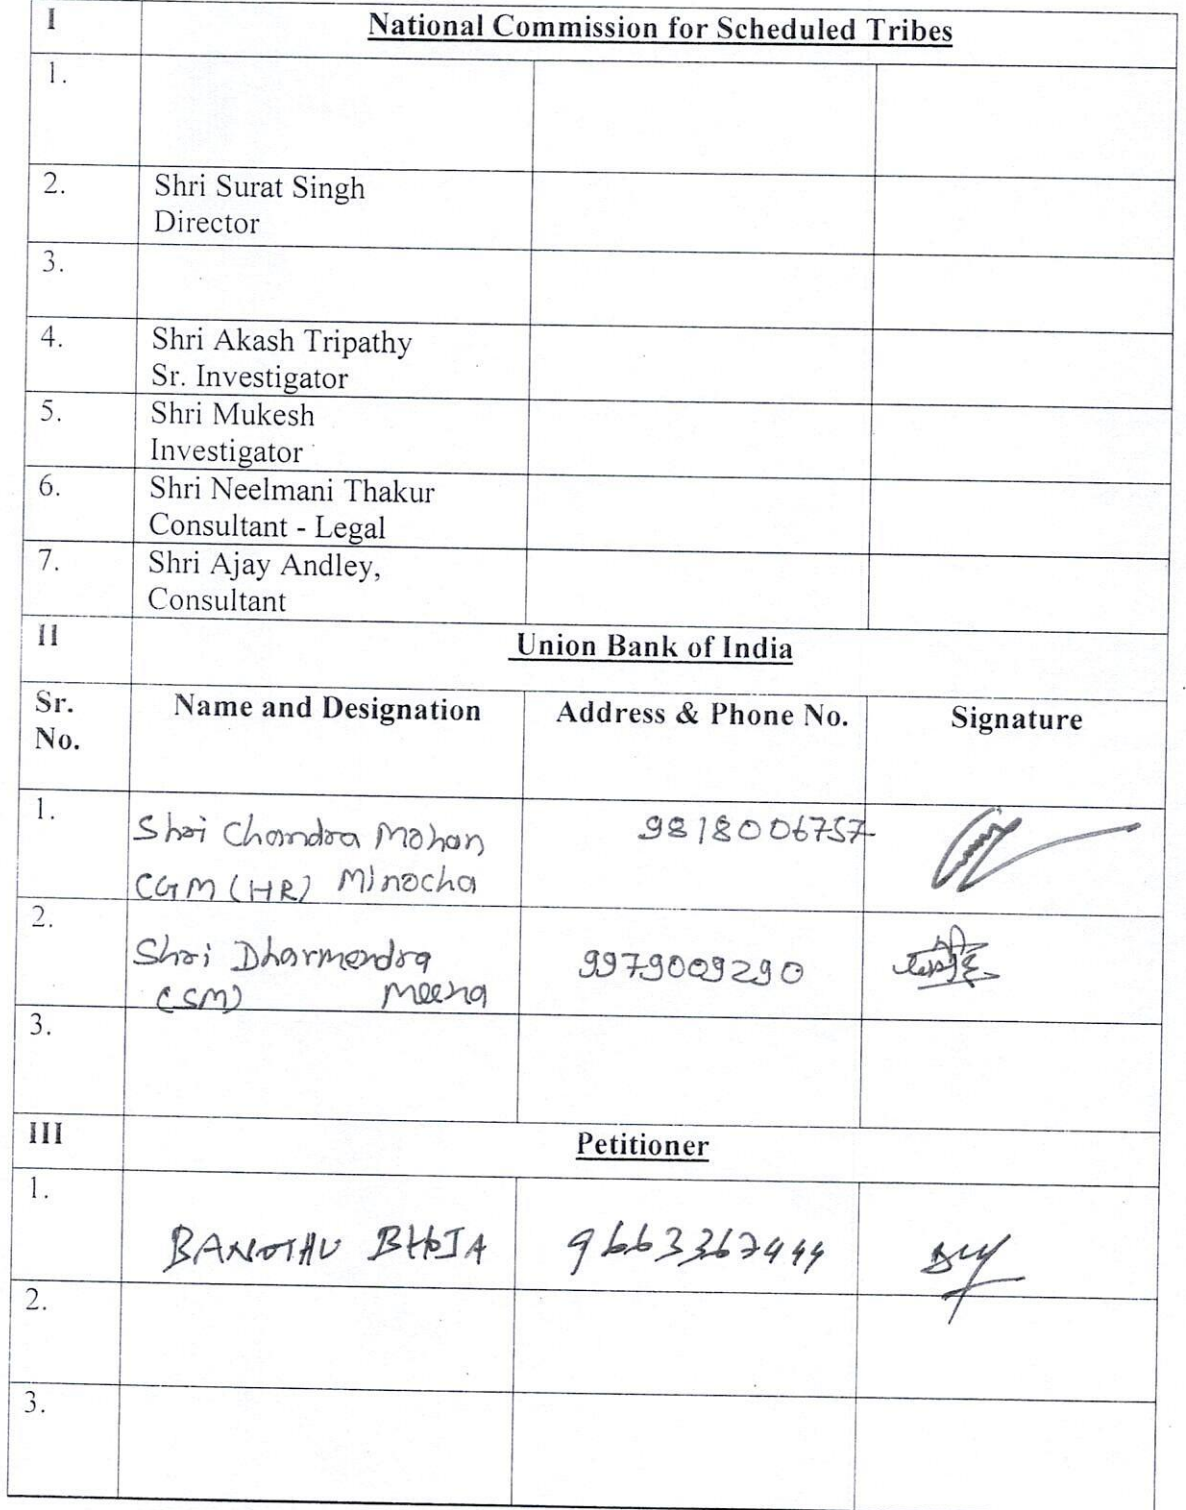 I National Commission for Scheduled Tribes
1.
2. Shri Surat Singh
Director
3.
4. Shri Akash Tripathy
Sr. Investigator
5. Shri Mukesh
Investigator
6. Shri Neelmani Thakur
Consultant - Legal
7. Shri Ajay Andley,
Consultant
II Union Bank of India
Sr. No. Name and Designation Address & Phone No. Signature
1. Shri Chandra Mohan 9818006757
CGM (HR) Minocha
2. Shri Dharmendra 9979009290
(SM) Meena
3.
III Petitioner
1. BANOTHU BHOJA 9663367444
2.
3.